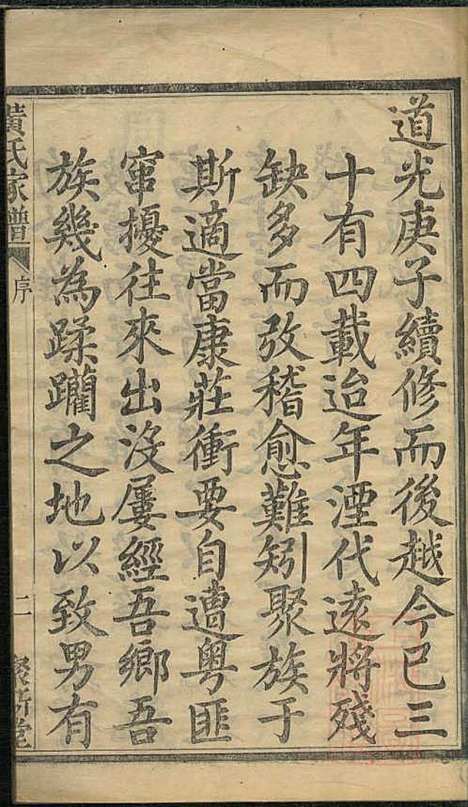 道光庚子續修而後越今已三
十有四載迨年湮代遠將殘
缺多而攷稽愈難矧聚族于
斯適當康莊衝要自遭粵匪
竄擾往來出沒屢經吾鄉吾
族幾為蹂躪之地以致男有
黃氏家譜
序
二
聚新堂